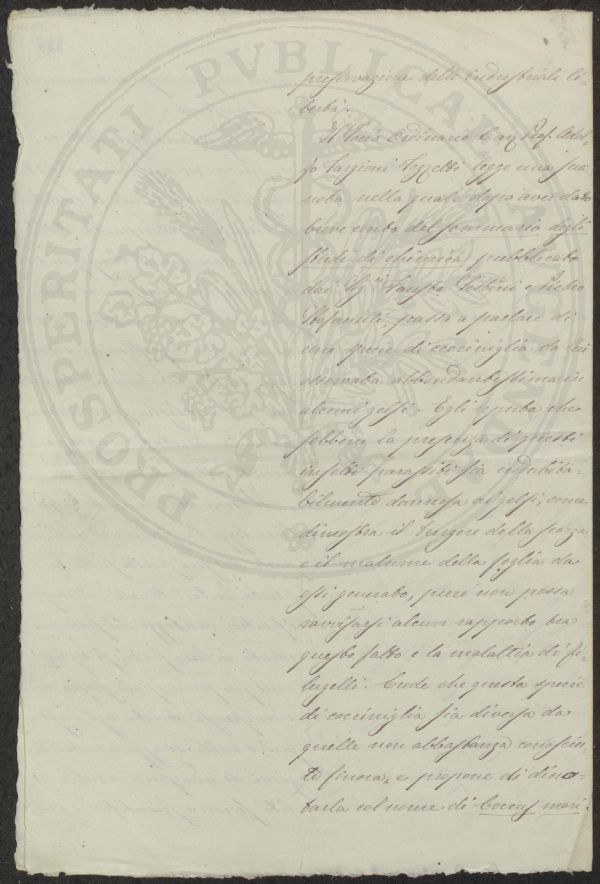 preservazione delle industriali li-
bertà.
Il Socio Ordinario Cav. Prof. Adol-
fo Targioni Tozzetti legge una sua
nota nella quale dopo aver dato
breve conto del sommario degli
studi di chimica pubblicato
dai Sig.ri Fausto Sestini e Pietro
Stefanelli, passa a parlare di
una specie di cocciniglia da lui
osservata abbondantissima in
alcuni gelsi. Egli reputa che
sebbene la presenza di questi
insetti parassiti sia indubita-
bilmente dannosa ai gelsi, come
dimostra il turgore della scorza
e il malume della foglia da
essi generato, pure non possa
ravvisarsi alcun rapporto tra
questo fatto e la malattia di fi-
lugelli. Crede che questa specie
di cocciniglia sia diversa da
quelle non abbastanza conosciu-
te finora, e propone di dino-
tarla col nome di Coccus mori.
PROSPERITATI PVBLICAE